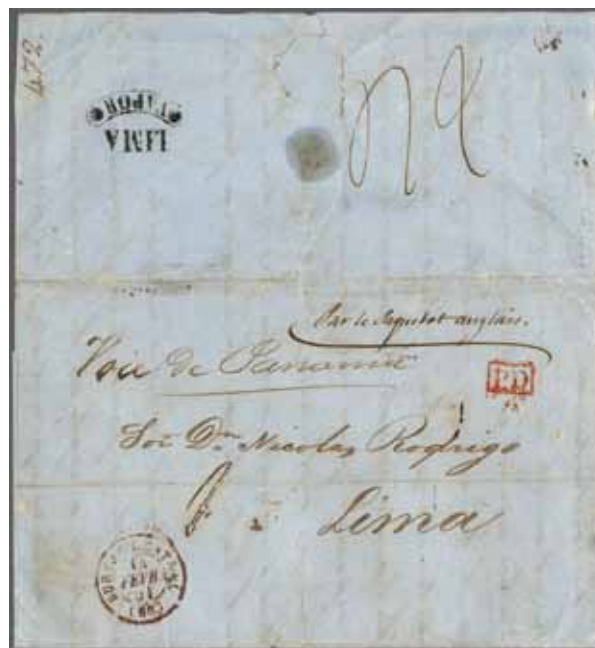 472
LIMA
VAPOR
Par le Paquebot anglais.
Voie de Panama
P.D.
Sor Dn Nicolas Rodrigo
Lima